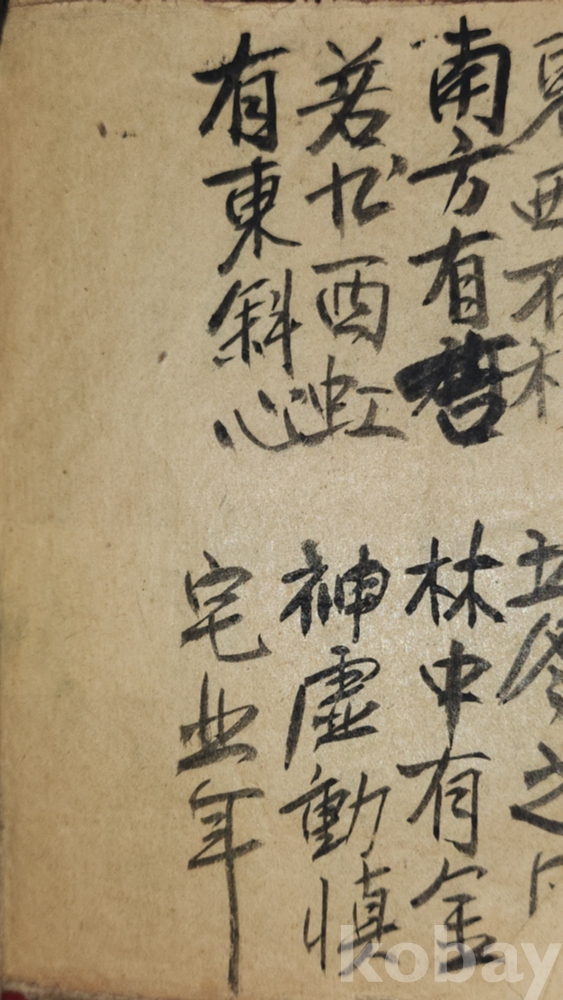 東西有
之
南方有
林中有金
若 酉虹
神虛動慎
有東斜心
宅 年
kobay